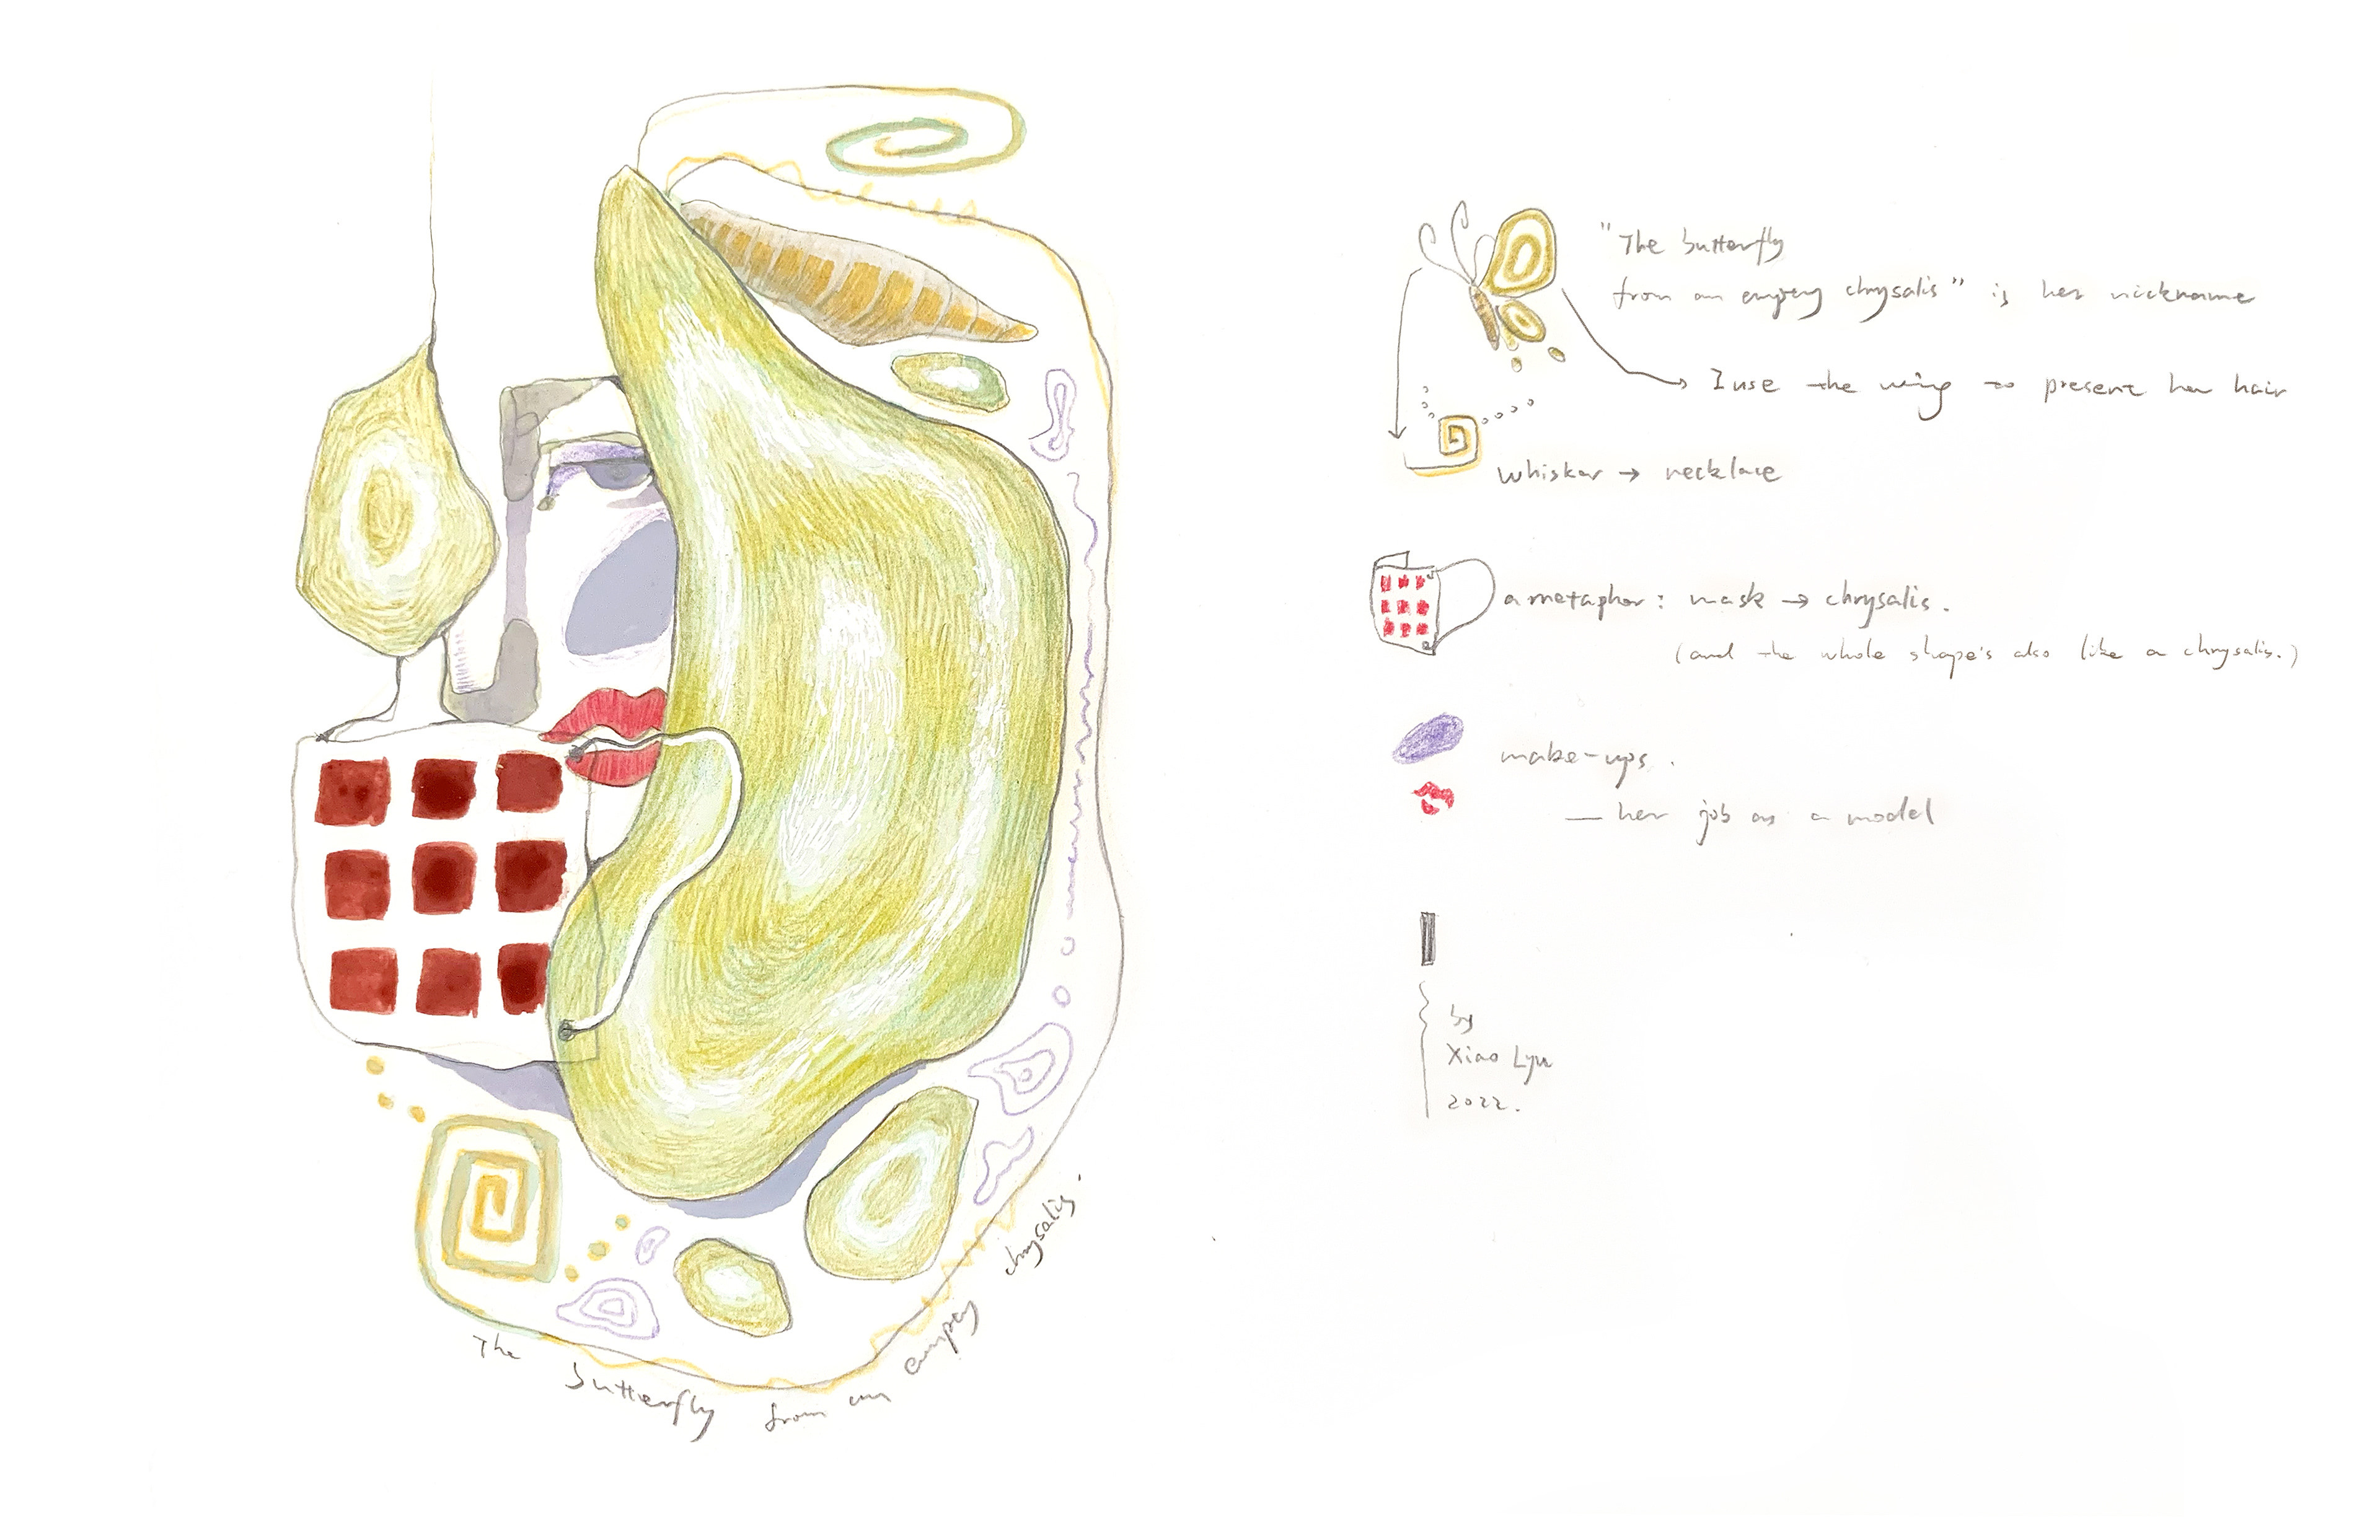 The butterfly from an empty chrysalis.
"The butterfly
from an empty chrysalis" is her nickname
I use the wing to present her hair
whisker → necklace
a metaphor: mask → chrysalis.
(and the whole shape's also like a chrysalis.)
make-ups.
— her job as a model
by
Xiao Lyu
2022.